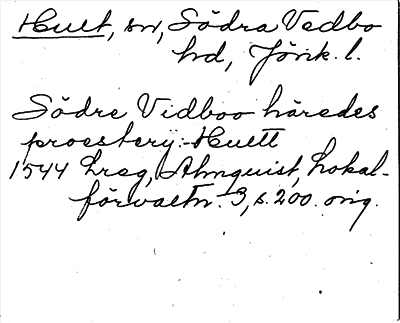 Hult, sn, Södra Vedbo
hd, Jönk. l.
Södre Vidboo häredes
proestery: Huett
1544 Lreg, Almquist, Lokal-
förvaltn. 3, s. 200. orig.